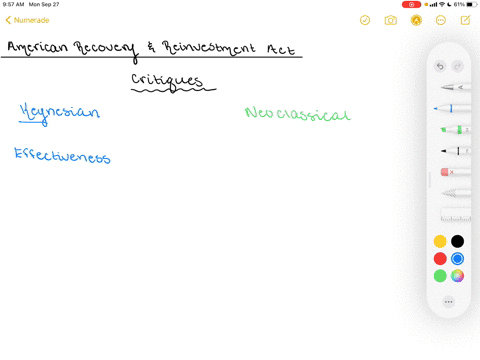 9:57 AM Mon Sep 27
61%
Numerade
American Recovery & Reinvestment Act
Critiques
Keynesian
Neoclassical
Effectiveness